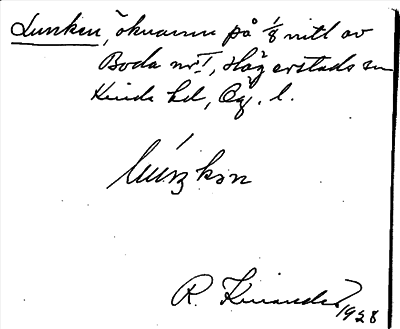 Lunken, öknamn på 1/8 mtl av
Boda nr 1, Hägerstads sn
Kinda hd, Ög. l.
R. Kinander 1928